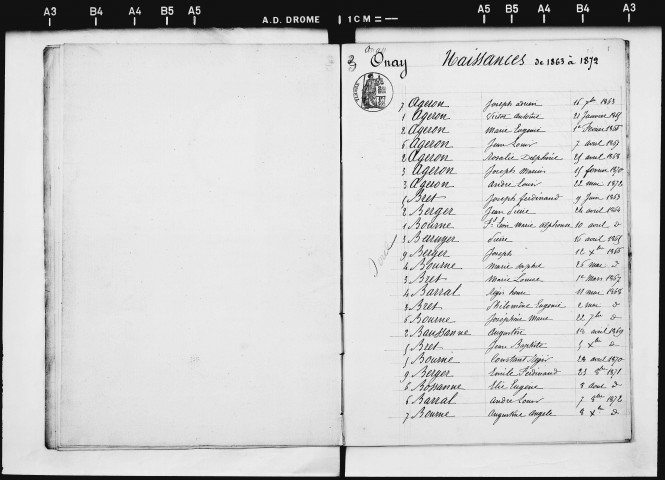 A3 B4 A4 B5 A5 A.D. DROME 1 CM = A5 B5 A4 B4 A3
Onay
Onay Naissances de 1863 à 1872
7 Ageron Joseph Adrien 16 7bre 1863
1 Ageron Victor Antoine 21 Janvier 1865
2 Ageron Marie Eugenie 1er Fevrier 1866
6 Ageron Jean Louis 7 avril 1867
2 Ageron Rosalie Delphine 25 avril 1868
3 Ageron Joseph Marius 15 fevrier 1870
3 Ageron André Louis 22 mai 1872
5 Bret Joseph Ferdinand 9 Juin 1863
2 Berger Jean Pierre 24 avril 1864
1 Bourne Fs Leon Marie Alphonse 10 avril d
3 Baruyer Pierre 16 avril 1865
9 Berger Joseph 12 Xbre 1866
4 Bourne Marie Sophie 26 mai d
3 Bret Marie Louise 1er Mars 1867
4 Barral Régis 11 mai 1868
3 Bret Philomène Eugenie 2 mai d
6 Bourne Josephine Marie 22 7bre d
2 Baussanne Augustin avril 1869
5 Bret Jean Baptiste 5 Xbre d
5 Bourne Constant Régis 28 avril 1870
9 Berger Emile Ferdinand 23 8bre 1871
6 Bossanne Elie Eugene 8 aout d
6 Barral André Louis 7 8bre 1872
7 Bourne Augustine Angele 8 Xbre d